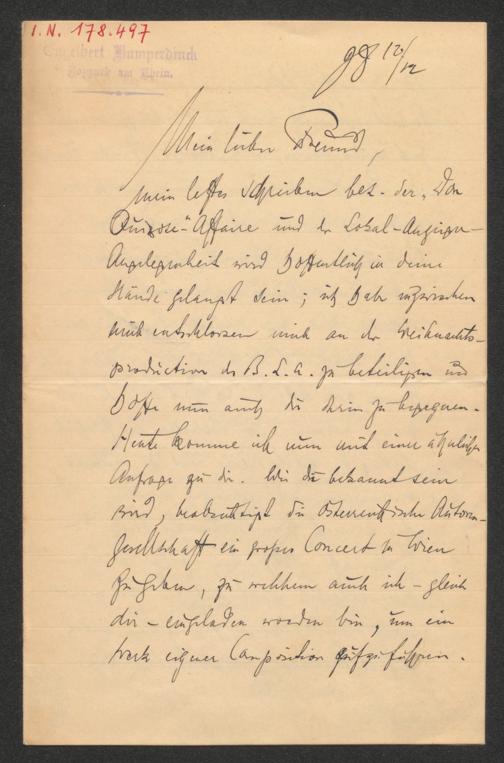 I.N. 178.497
Engelbert Humperdinck
Boppard am Rhein.
98 12/12
Mein lieber Freund,
mein letztes Schreiben bez. der "Don
Quixote"-Affaire und der Lokal-Anzeiger-
Angelegenheit wird hoffentlich in deine
Hände gelangt sein; ich habe inzwischen
mich entschlossen mich an der Weihnachts-
production des B. L. A. zu beteiligen und
hoffe nun auch dir darin zu begegnen.
Heute komme ich nun mit einer ähnlichen
Anfrage zu dir. Wie dir bekannt sein
wird, beabsichtigt die österreichische Autoren-
gesellschaft ein großes Concert in Wien
zu geben, zu welchem auch ich – gleich
dir – eingeladen worden bin, um ein
Werk eigener Composition aufzuführen.